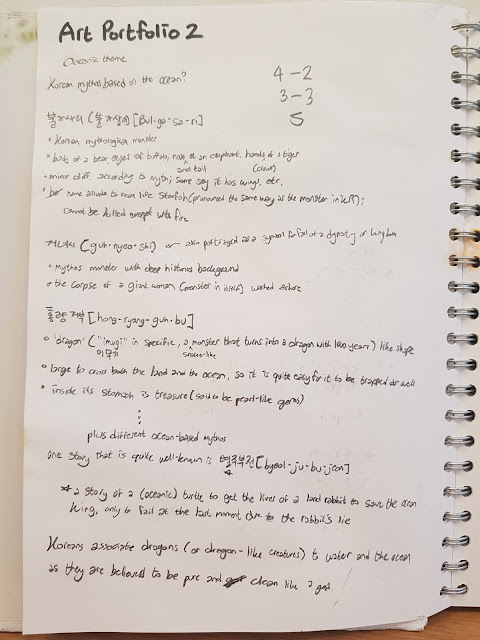 Art Portfolio 2
Oceanic theme
Korean mythos based on the ocean?
4 - 2
3 - 3
5
불가사리 (불가살이) [Bul-ga-sa-ri]
• Korean mythological monster
• body of a bear, eyes of buffalo, nose of an elephant, hands of a tiger
and tail (claw)
• minor diff. according to myth; some say it has wings, etc.
• name allude to real life starfish (pronounced the same way as the monster in KR);
cannot be killed except with fire
거녀시 (guh-nyeo-shi) or also portrayed as a symbol fall of a dynasty or kingdom
• mythos monster with deep historical background
• the corpse of a giant woman (monster in itself) washed ashore
[hong-ryang-guh-bu]
• 'dragon' ("imugi" in specific, a monster that turns into a dragon with 1000 years) like shape
이무기 snake-like
• large to cross both the land and the ocean, so it is quite easy for it to be trapped as well
• inside its stomach is treasure (said to be pearl-like gems)
plus different ocean-based mythos
One story that is quite well-known is 별주부전 [byeol-ju-bu-jeon]
* a story of a (oceanic) turtle to get the liver of a land rabbit to save the ocean
king, only to fail at the last moment due to the rabbit's lie
Koreans associate dragons (or dragon-like creatures) to water and the ocean
as they are believed to be pure and clean like a god.